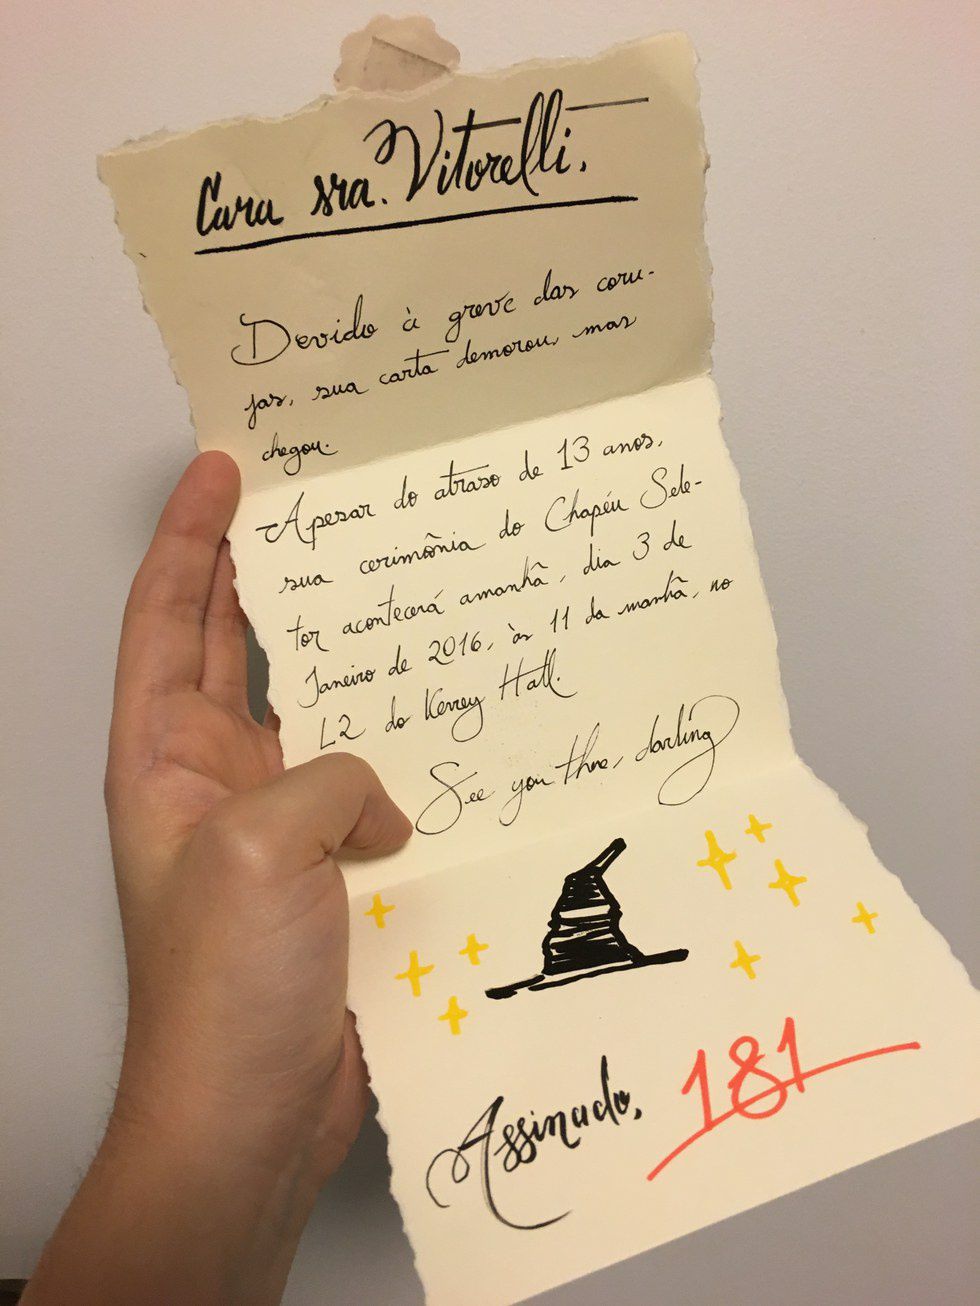 Cara sra. Vitorelli,
Devido à greve das coru-
jas, sua carta demorou, mas
chegou.
Apesar do atraso de 13 anos,
sua cerimônia do Chapéu Sele-
tor acontecerá amanhã, dia 3 de
Janeiro de 2016, às 11 da manhã, no
L2 do Kerrey Hall.
See you there, darling
Assinado, 181